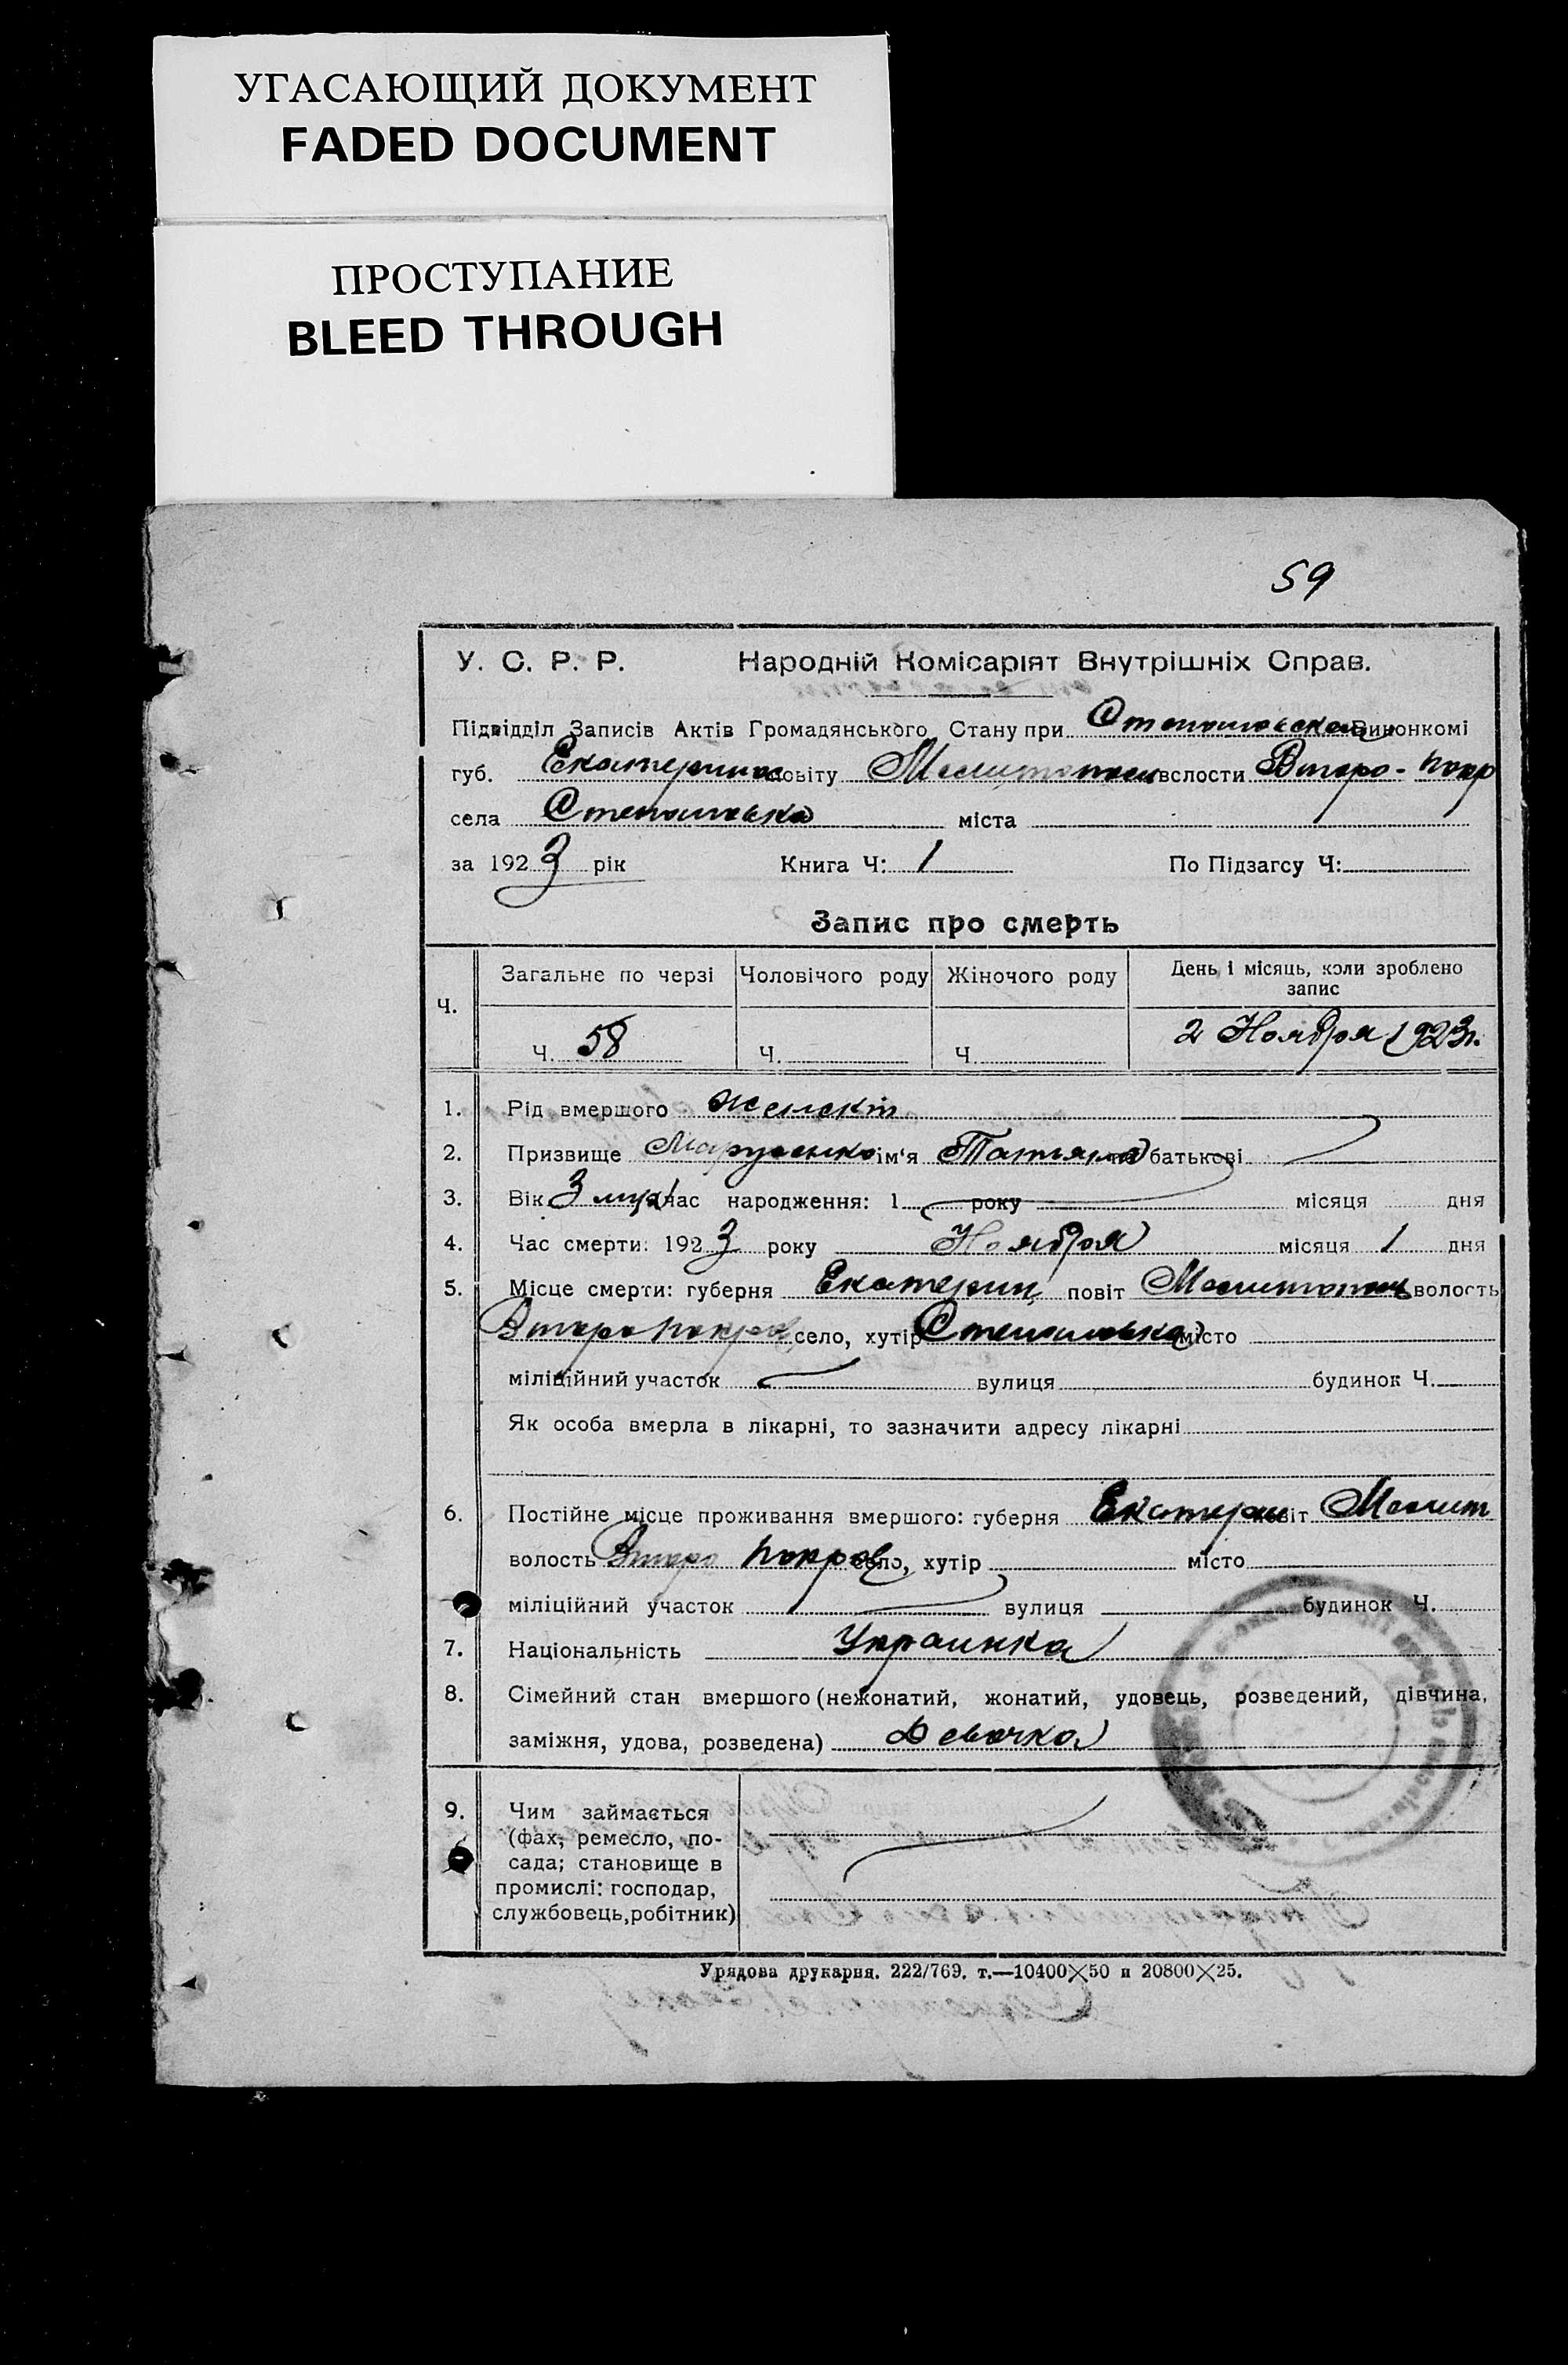 УГАСАЮЩИЙ ДОКУМЕНТ
FADED DOCUMENT
ПРОСТУПАНИЕ
BLEED THROUGH
59
У. С. Р. Р. Народній Комісаріят Внутрішніх Справ.
Підвідділ Записів Актів Громадянського Стану при Виконкомі
губ. Екатеринос повіту Мелитопол волости Второ-покр
села міста
за 1923 рік Книга Ч: 1 По Підзагсу Ч:
Запис про смерть
Ч. Загальне по черзі Чоловічого роду Жіночого роду День і місяць, коли зроблено
запис
Ч. 58 Ч. Ч. 2 Ноября 1923г.
1. Рід вмершого женскій
2. Призвище Марусенко ім'я Татьяна по батькові
3. Вік 3 час народження: 1 року місяця дня
4. Час смерти: 1923 року Ноября місяця 1 дня
5. Місце смерти: губерня Екатерин повіт Мелитополь волость
Второ покров село, хутір місто
міліційний участок вулиця будинок Ч.
Як особа вмерла в лікарні, то зазначити адресу лікарні
6. Постійне місце проживання вмершого: губерня Екатерин повіт Мелит
волость Второ покров село, хутір місто
міліційний участок вулиця будинок Ч.
7. Національність Украинка
8. Сімейний стан вмершого (нежонатий, жонатий, удовець, розведений, дівчина,
заміжня, удова, розведена) Девочка
9. Чим займається
(фах; ремесло, по-
сада; становище в
промислі: господар,
службовець, робітник)
Урядова друкарня. 222/769. т.—10400×50 и 20800×25.